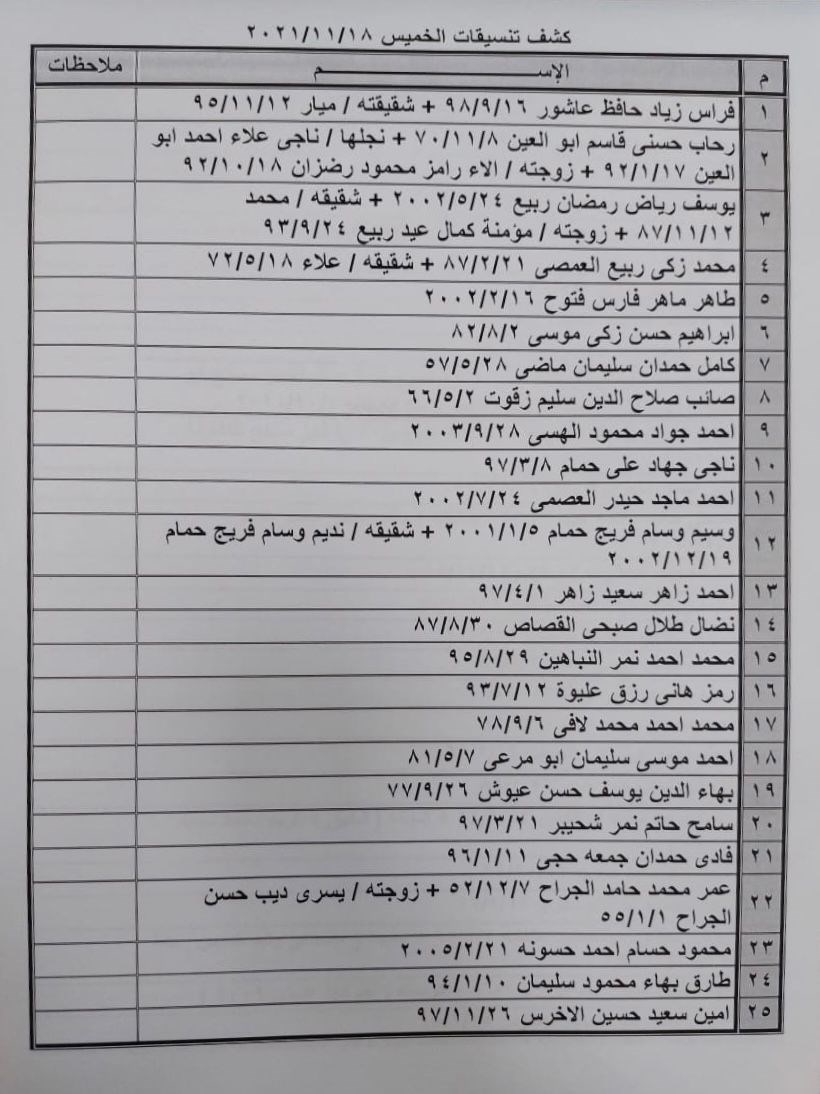 كشف تنسيقات الخميس ٢٠٢١/١١/١٨
م الإســـــــم ملاحظات
١ فراس زياد حافظ عاشور ٩٨/٩/١٦ + شقيقته / ميار ٩٥/١١/١٢
٢ رحاب حسنى قاسم ابو العين ٧٠/١١/٨ + نجلها / ناجى علاء احمد ابو
العين ٩٢/١/١٧ + زوجته / الاء رامز محمود رضزان ٩٢/١٠/١٨
٣ يوسف رياض رمضان ربيع ٢٠٠٢/٥/٢٤ + شقيقه / محمد
٨٧/١١/١٢ + زوجته / مؤمنة كمال عيد ربيع ٩٣/٩/٢٤
٤ محمد زكى ربيع العمصى ٨٧/٢/٢١ + شقيقه / علاء ٧٢/٥/١٨
٥ طاهر ماهر فارس فتوح ٢٠٠٢/٢/١٦
٦ ابراهيم حسن زكى موسى ٨٢/٨/٢
٧ كامل حمدان سليمان ماضى ٥٧/٥/٢٨
٨ صائب صلاح الدين سليم زقوت ٦٦/٥/٢
٩ احمد جواد محمود الهسى ٢٠٠٣/٩/٢٨
١٠ ناجى جهاد على حمام ٩٧/٣/٨
١١ احمد ماجد حيدر العصمى ٢٠٠٢/٧/٢٤
١٢ وسيم وسام فريج حمام ٢٠٠١/١/٥ + شقيقه / نديم وسام فريج حمام
٢٠٠٢/١٢/١٩
١٣ احمد زاهر سعيد زاهر ٩٧/٤/١
١٤ نضال طلال صبحى القصاص ٨٧/٨/٣٠
١٥ محمد احمد نمر النباهين ٩٥/٨/٢٩
١٦ رمز هانى رزق عليوة ٩٣/٧/١٢
١٧ محمد احمد محمد لافى ٧٨/٩/٦
١٨ احمد موسى سليمان ابو مرعى ٨١/٥/٧
١٩ بهاء الدين يوسف حسن عيوش ٧٧/٩/٢٦
٢٠ سامح حاتم نمر شحيبر ٩٧/٣/٢١
٢١ فادى حمدان جمعه حجى ٩٦/١/١١
٢٢ عمر محمد حامد الجراح ٥٢/١٢/٧ + زوجته / يسرى ديب حسن
الجراح ٥٥/١/١
٢٣ محمود حسام احمد حسونه ٢٠٠٥/٢/٢١
٢٤ طارق بهاء محمود سليمان ٩٤/١/١٠
٢٥ امين سعيد حسين الاخرس ٩٧/١١/٢٦